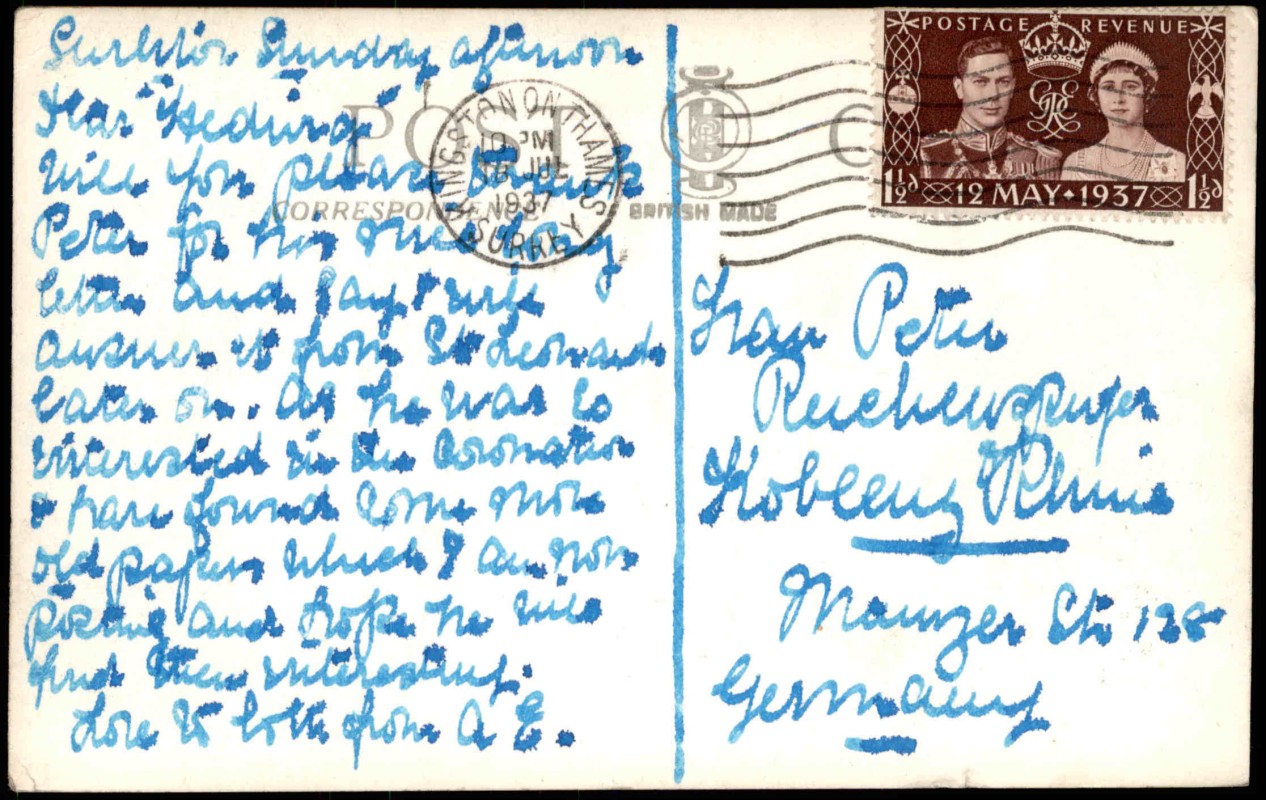 Surbiton Sunday afternoon
Dear Hedwig
Will you please thank
Peter for his interesting
letter and say I will
answer it from St Leonards
later on. As he was so
interested in the Coronation
I have found some more
old papers which I am now
posting and hope he will
find them interesting.
Love to both from A E.
POST C
CORRESPONDENCE
BRITISH MADE
KINGSTON ON THAMES
PM
18 JUL
1937
SURREY
POSTAGE REVENUE
1½d 12 MAY 1937 1½d
Frau Peter
Reichensperger
Koblenz Rhine
Mainzer Str 128
Germany